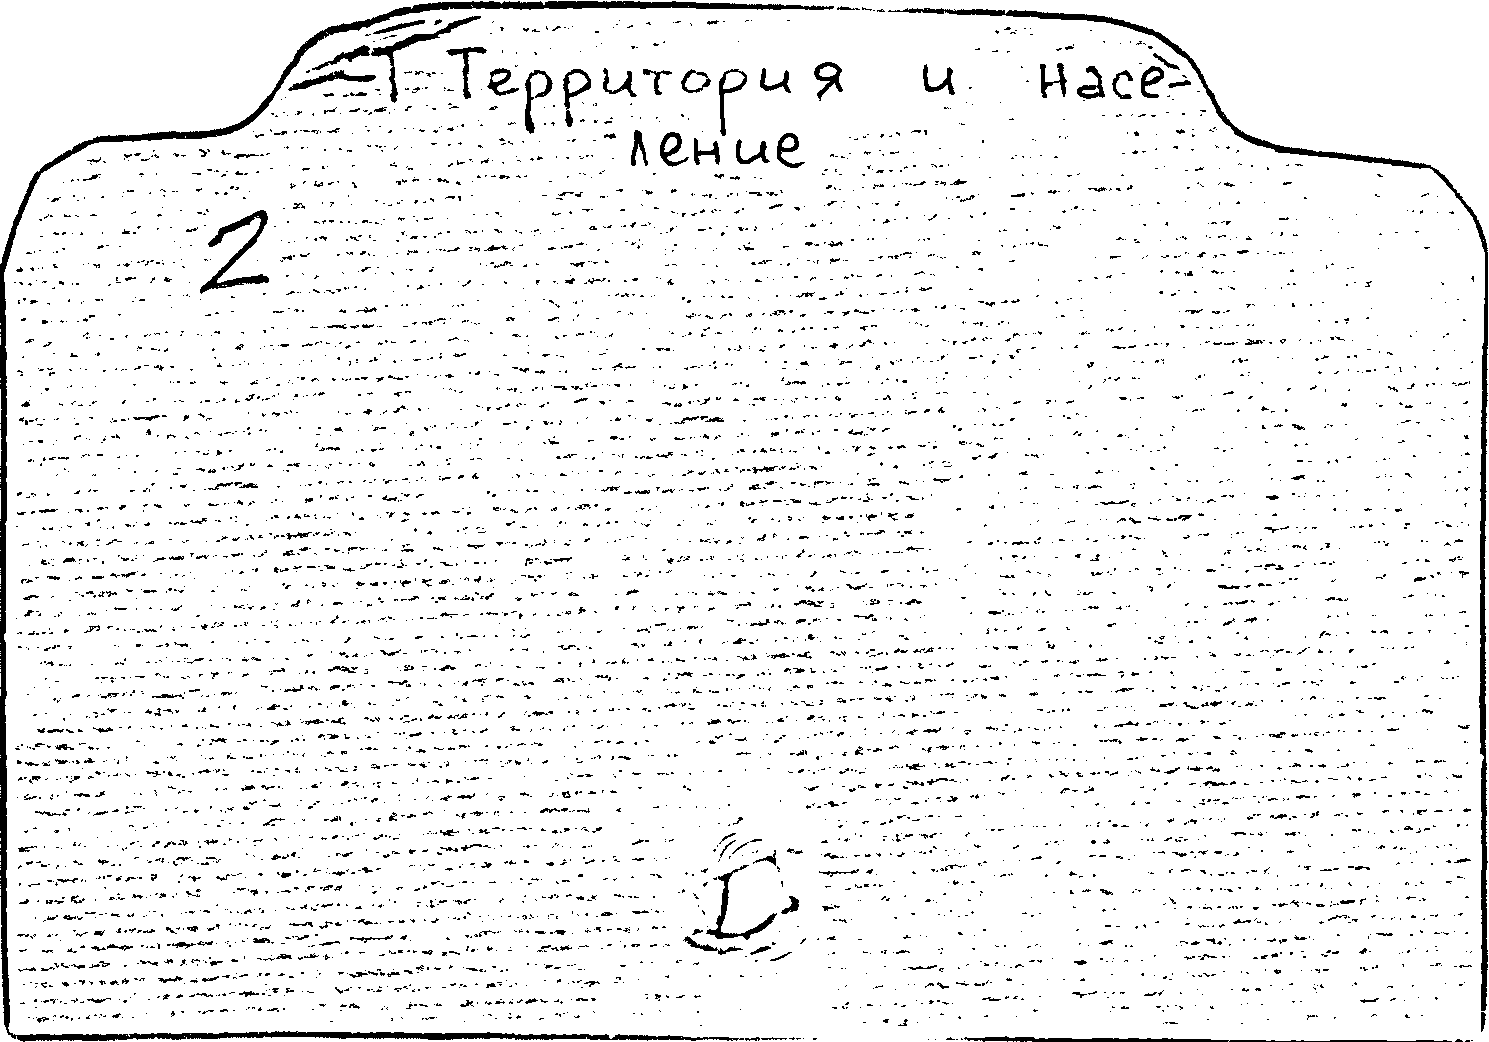 Территория и насе-
ление
2